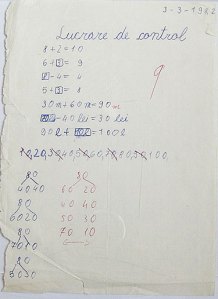 3-3-1982
Lucrare de control
8+2=10
6+3=9
8-4=4
5+3=8
30m+60m=90m
70 lei-40 lei=30 lei
90l+10l=100l
9
10,20,30,40,50,60,70,80,90,100
80 80
40 40 60 20
80 40 40
60 20 50 30
80 70 10
70 10
80
50 30